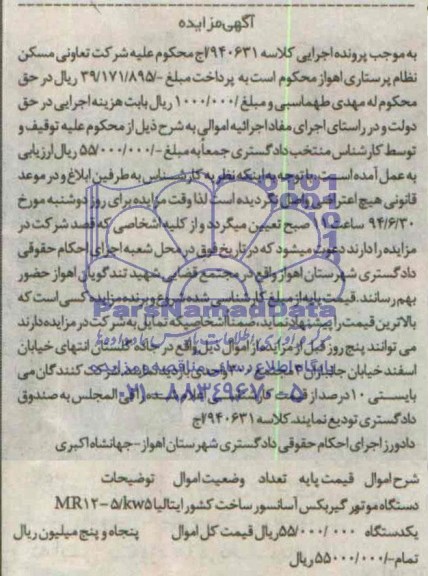 آگهی مزایده
به موجب پرونده اجرایی کلاسه ۹۴۰۶۳۱/اج محکوم علیه شرکت تعاونی مسکن
نظام پرستاری اهواز محکوم است به پرداخت مبلغ -/۳۹/۱۷۱/۸۹۵ ریال در حق
محکوم له مهدی طهماسبی و مبلغ ۱۰۰۰/۰۰۰/ ریال بابت هزینه اجرایی در حق
دولت و در راستای اجرای مفاد اجرائیه اموالی به شرح ذیل از محکوم علیه توقیف و
توسط کارشناس منتخب دادگستری جمعاً به مبلغ -/۵۵/۰۰۰/۰۰۰ ریال ارزیابی
به عمل آمده است. با توجه به اینکه نظریه کارشناس به طرفین ابلاغ و در موعد
قانونی هیچ اعتراضی واصل نگردیده است لذا وقت مزایده برای روز دوشنبه مورخ
۹۴/۶/۳۰ ساعت صبح تعیین میگردد و از کلیه اشخاصی که قصد شرکت در
مزایده را دارند دعوت میشود که در تاریخ فوق در محل شعبه اجرای احکام حقوقی
دادگستری شهرستان اهواز واقع در مجتمع قضایی شهید تندگویان اهواز حضور
بهم رسانند. قیمت پایه از مبلغ کارشناسی شده شروع و برنده مزایده کسی است که
بالاترین قیمت را پیشنهاد نماید، ضمناً اشخاصیکه تمایل به شرکت در مزایده دارند
می توانند پنج روز قبل از مزایده از اموال ذیل واقع در جاده گلستان انتهای خیابان
اسفند خیابان جانبازان بازدید شرکت کنندگان می
بایستی ۱۰ درصد از قیمت کارشناسی اعلام شده را فی المجلس به صندوق
دادگستری تودیع نمایند. کلاسه ۹۴۰۶۳۱/اج
دادورز اجرای احکام حقوقی دادگستری شهرستان اهواز-جهانشاه اکبری
شرح اموال قیمت پایه تعداد وضعیت اموال توضیحات
دستگاه موتور گیربکس آسانسور ساخت کشور ایتالیا MR۱۲-۵/kw۵
یکدستگاه ۵۵/۰۰۰/۰۰۰ ریال قیمت کل اموال پنجاه و پنج میلیون ریال
تمام-/۵۵۰۰۰/۰۰۰ ریال
ParsNamadData
پایگاه اطلاع رسانی مناقصه و مزایده
۰۲۱-۸۸۳۴۹۶۷۰-۵